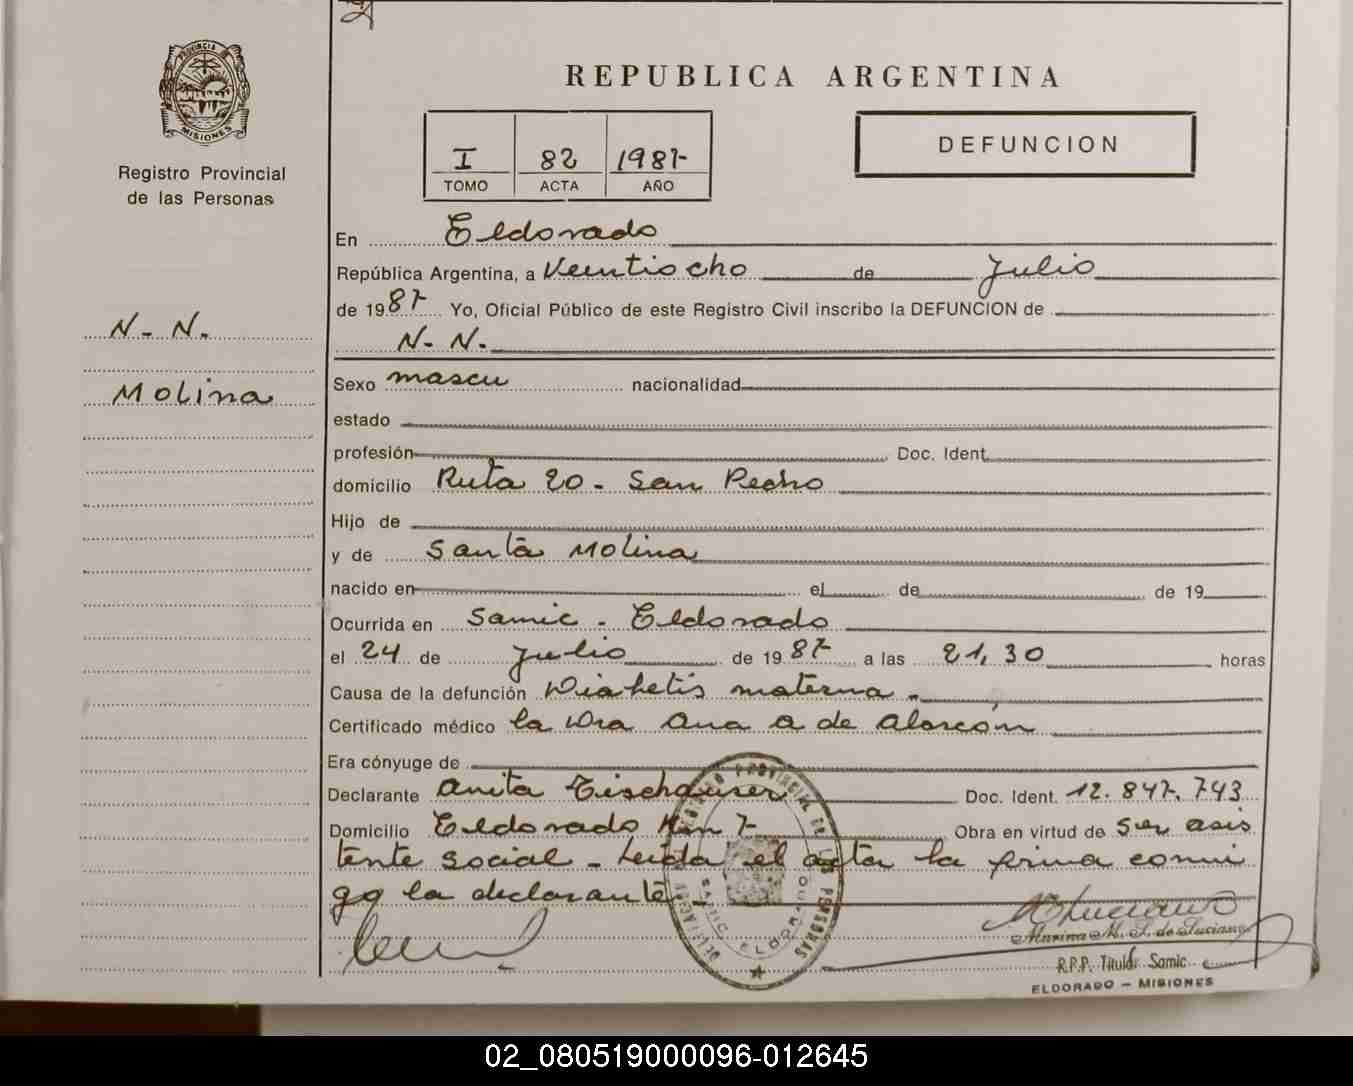 PROVINCIA
MISIONES
Registro Provincial
de las Personas
N. N.
Molina
REPUBLICA ARGENTINA
I 82 1987
TOMO ACTA AÑO
DEFUNCION
En Eldorado
República Argentina, a Veintiocho de Julio
de 1987 Yo, Oficial Público de este Registro Civil inscribo la DEFUNCION de
N. N.
Sexo mascu nacionalidad
estado
profesión Doc. Ident.
domicilio Ruta 20 - San Pedro
Hijo de
y de Santa Molina
nacido en el de de 19
Ocurrida en Samic - Eldorado
el 24 de Julio de 1987 a las 21,30 horas
Causa de la defunción Diabetis materna.
Certificado médico la Dra Ana a de Alarcón
Era cónyuge de
Declarante Anita Tischauser Doc. Ident. 12.847.743
Domicilio Eldorado Km 7 Obra en virtud de Ser asis
tente social - Leida el acta la firma conmi
go la declarante
Marina M. S. de Luciano
R.P.P. Titular Samic
ELDORADO - MISIONES
SAMIC ELDORADO
02_080519000096-012645